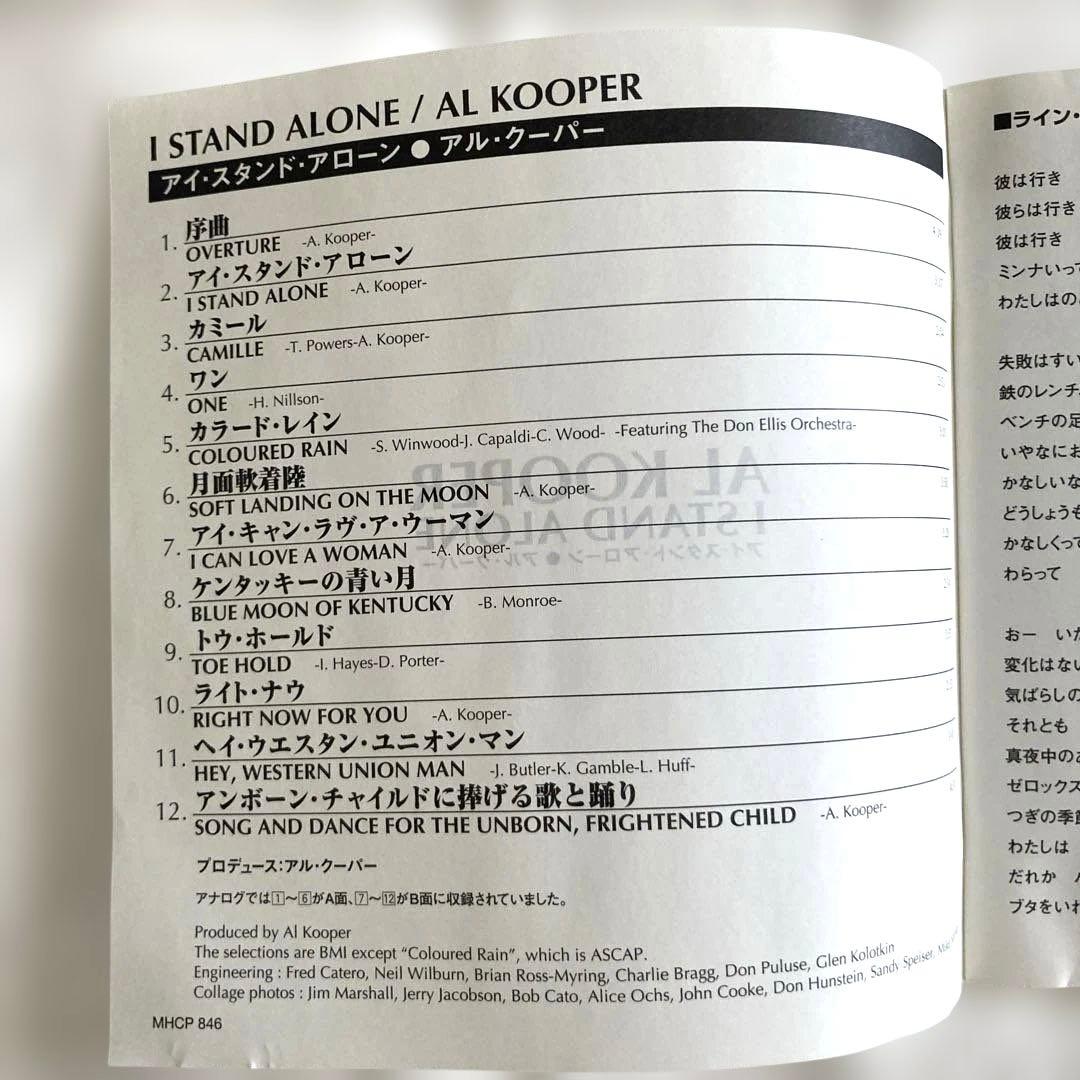 I STAND ALONE / AL KOOPER
アイ・スタンド・アローン ● アル・クーパー
1. 序曲
OVERTURE -A. Kooper-
2. アイ・スタンド・アローン
I STAND ALONE -A. Kooper-
3. カミール
CAMILLE -T. Powers-A. Kooper-
4. ワン
ONE -H. Nillson-
5. カラード・レイン
COLOURED RAIN -S. Winwood-J. Capaldi-C. Wood- -Featuring The Don Ellis Orchestra-
6. 月面軟着陸
SOFT LANDING ON THE MOON -A. Kooper-
7. アイ・キャン・ラヴ・ア・ウーマン
I CAN LOVE A WOMAN -A. Kooper-
8. ケンタッキーの青い月
BLUE MOON OF KENTUCKY -B. Monroe-
9. トウ・ホールド
TOE HOLD -I. Hayes-D. Porter-
10. ライト・ナウ
RIGHT NOW FOR YOU -A. Kooper-
11. ヘイ・ウエスタン・ユニオン・マン
HEY, WESTERN UNION MAN -J. Butler-K. Gamble-L. Huff-
12. アンボーン・チャイルドに捧げる歌と踊り
SONG AND DANCE FOR THE UNBORN, FRIGHTENED CHILD -A. Kooper-
プロデュース:アル・クーパー
アナログでは1〜6がA面、7〜12がB面に収録されていました。
Produced by Al Kooper
The selections are BMI except “Coloured Rain”, which is ASCAP.
Engineering : Fred Catero, Neil Wilburn, Brian Ross-Myring, Charlie Bragg, Don Puluse, Glen Kolotkin
Collage photos : Jim Marshall, Jerry Jacobson, Bob Cato, Alice Ochs, John Cooke, Don Hunstein, Sandy Speiser,
MHCP 846
■ライン・
彼は行き
彼らは行き
彼は行き
ミンナいって
わたしはの
失敗はすい
鉄のレンチ
ベンチの足
いやなにお
かなしいな
どうしょうも
かなしくって
わらって
おー いた
変化はない
気ばらしの
それとも
真夜中の
ゼロックス
つぎの季節
わたしは
だれか
ブタをいれ